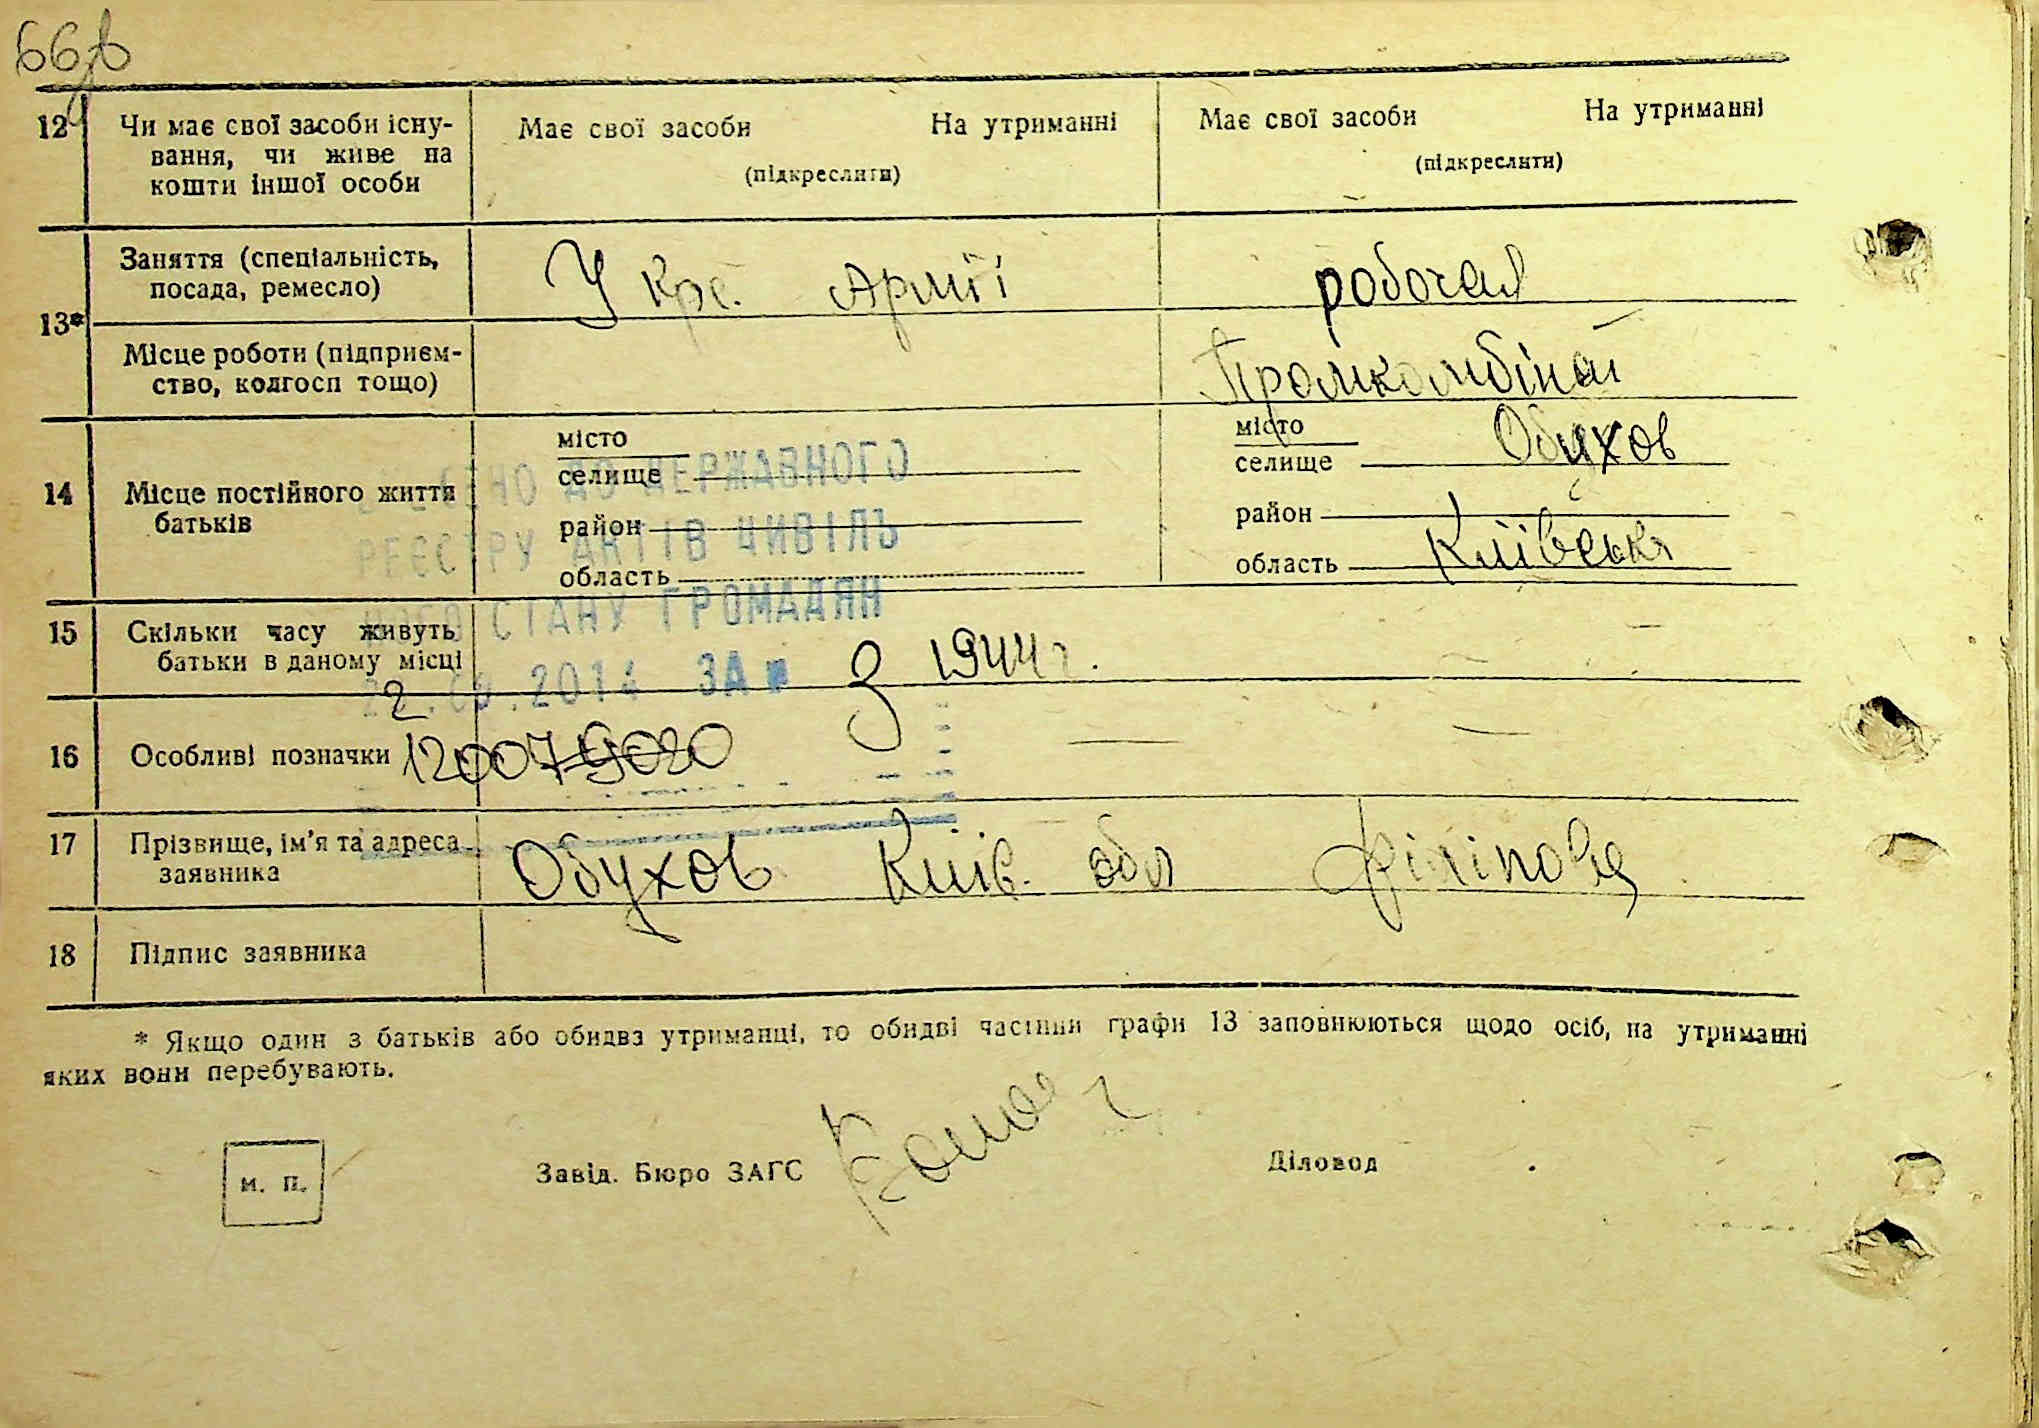 66
12 Чи має свої засоби існу- Має свої засоби На утриманні Має свої засоби На утриманні
вання, чи живе на (підкреслити) (підкреслити)
кошти іншої особи
Заняття (спеціальність, У Кр. Армії робочая
посада, ремесло)
13*
Місце роботи (підприєм- Промкомбінат
ство, колгосп тощо)
місто місто Обухов
селище селище
14 Місце постійного життя район район
батьків
область область Київська
ДО ДЕРЖАВНОГО
РЕЄСТРУ АКТІВ ЦИВІЛЬ
НОГО СТАНУ ГРОМАДЯН
2014 ЗА №
15 Скільки часу живуть З 1944 г.
батьки в даному місці
16 Особливі позначки — —
17 Прізвище, ім'я та адреса Обухов Київ. обл Філіпова
заявника
18 Підпис заявника
* Якщо один з батьків або обидва утриманці, то обидві частини графи 13 заповнюються щодо осіб, на утриманні
яких вони перебувають.
м. п. Завід. Бюро ЗАГС Діловод